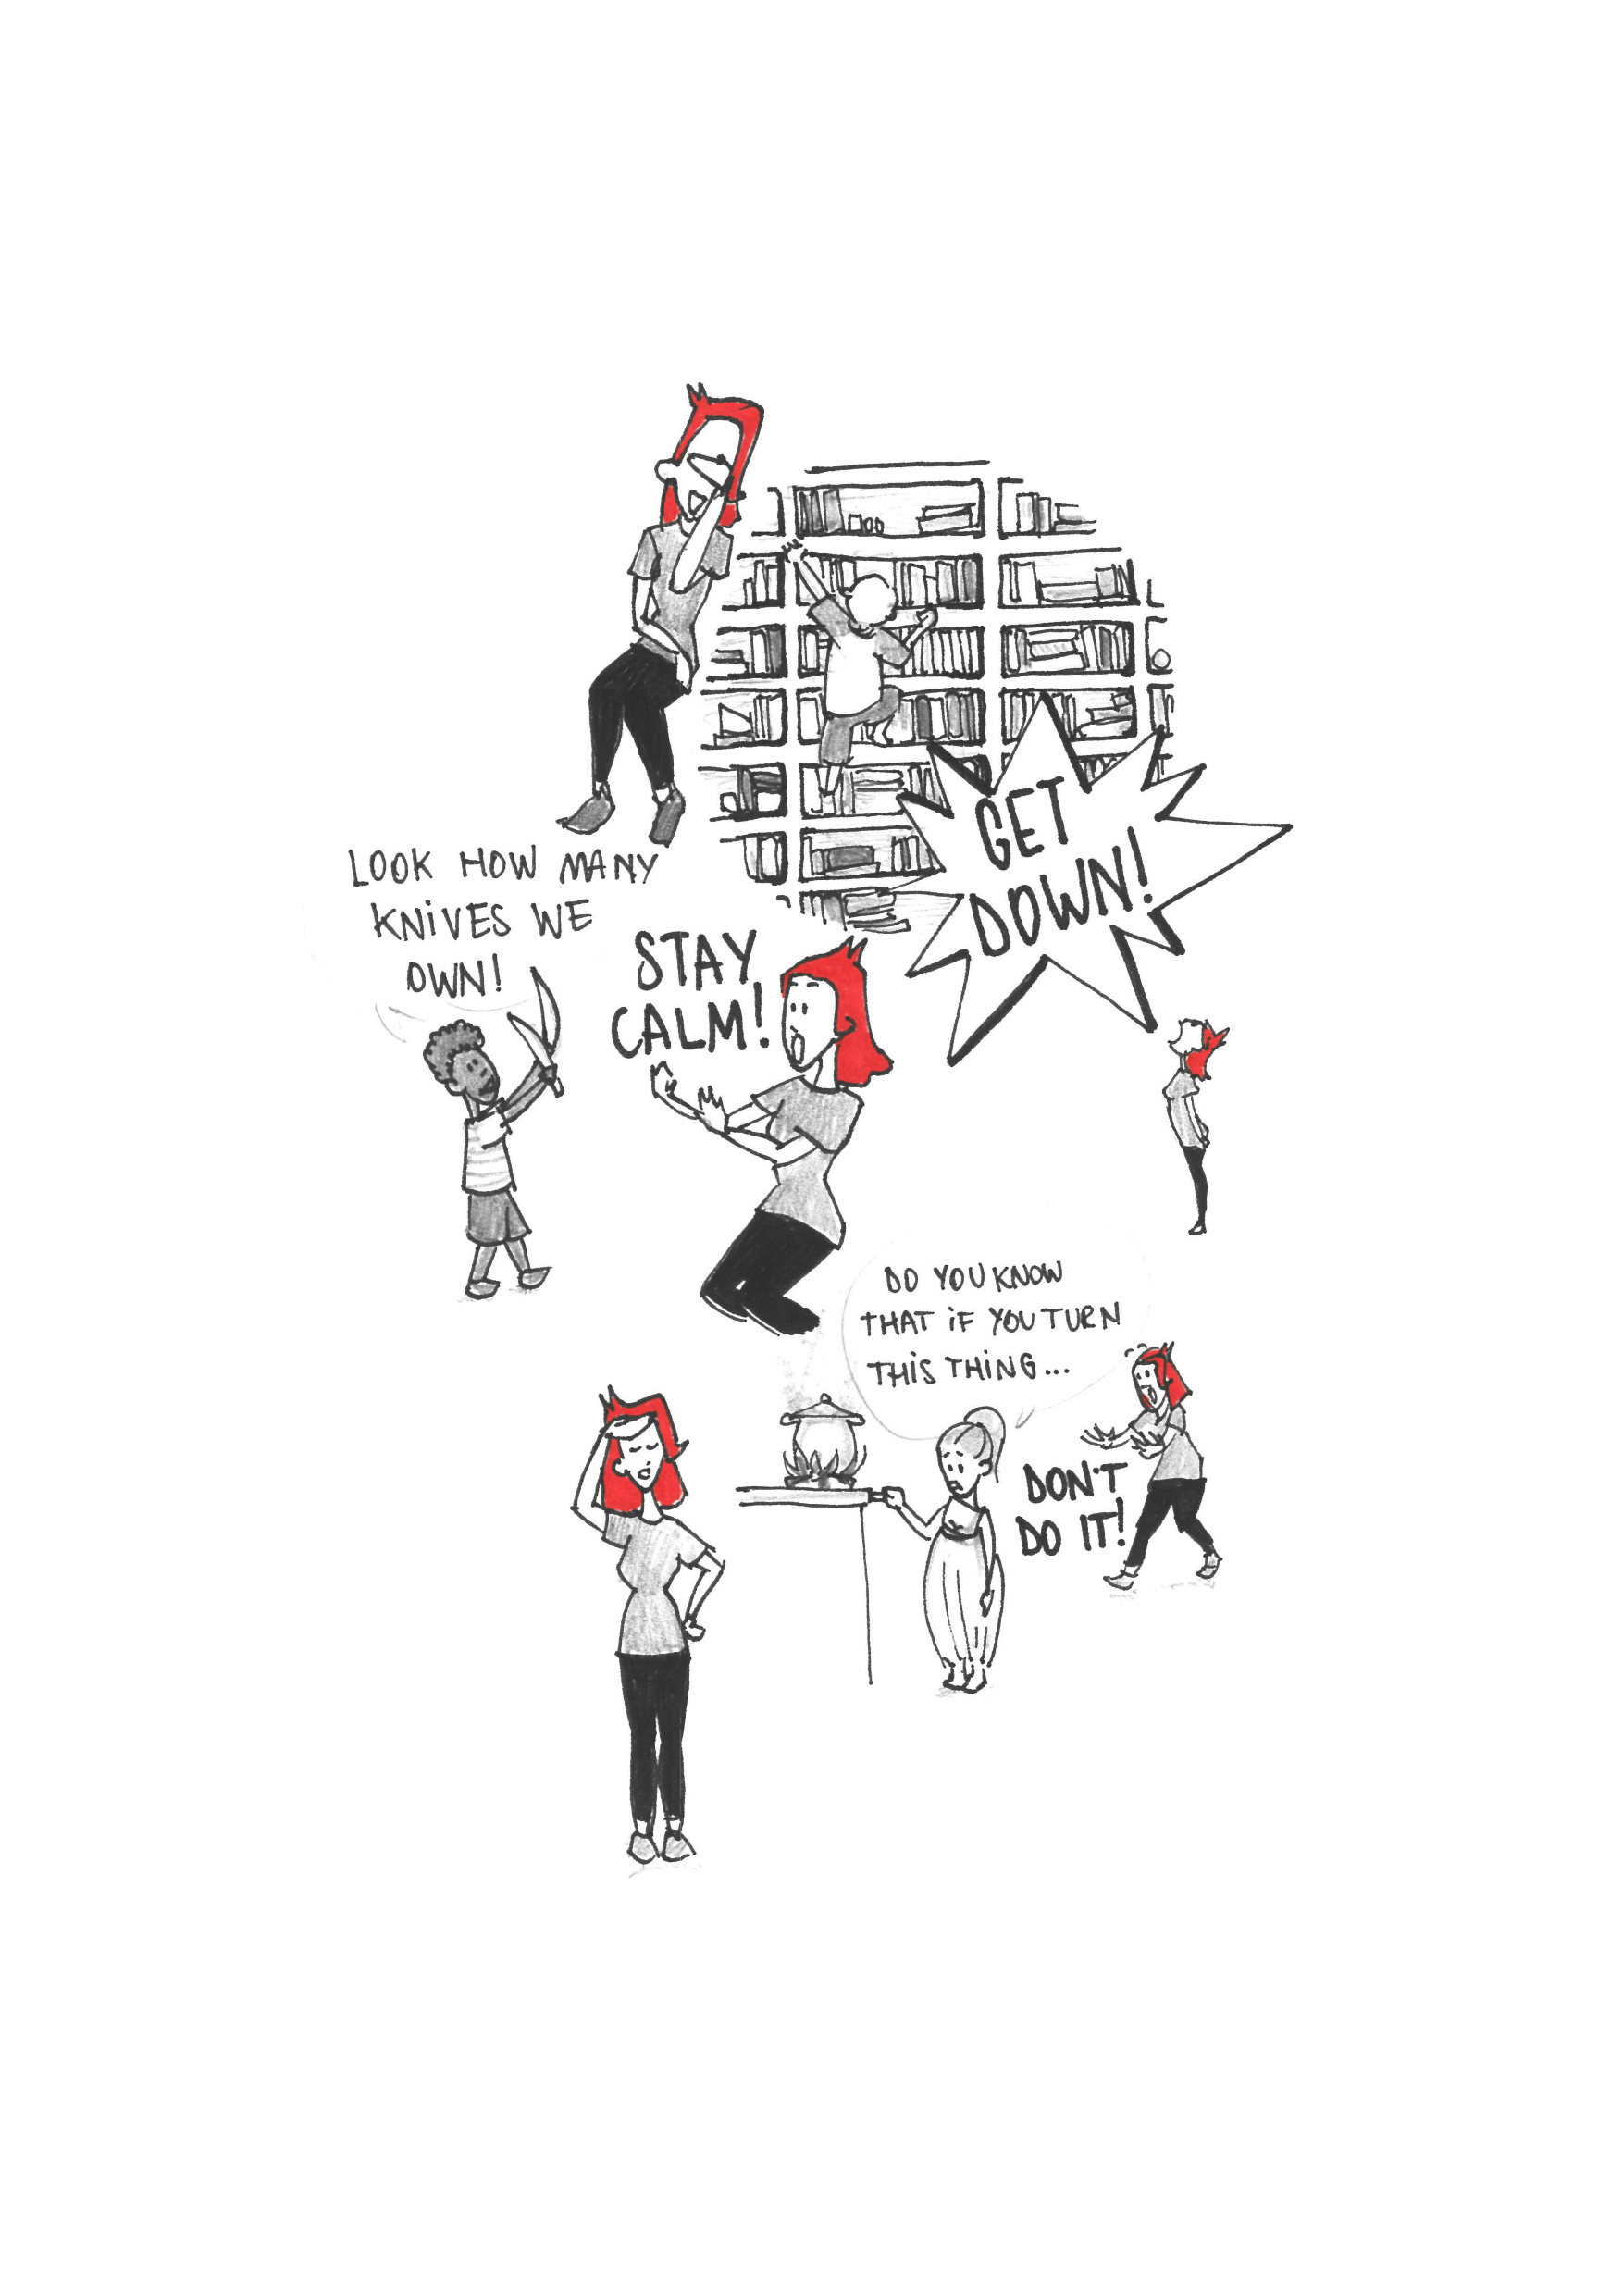 GET
DOWN!
LOOK HOW MANY
KNiVES WE
OWN!
STAY
CALM!
DO YOU KNOW
THAT iF YOU TURN
THiS THiNG...
DON'T
DO IT!